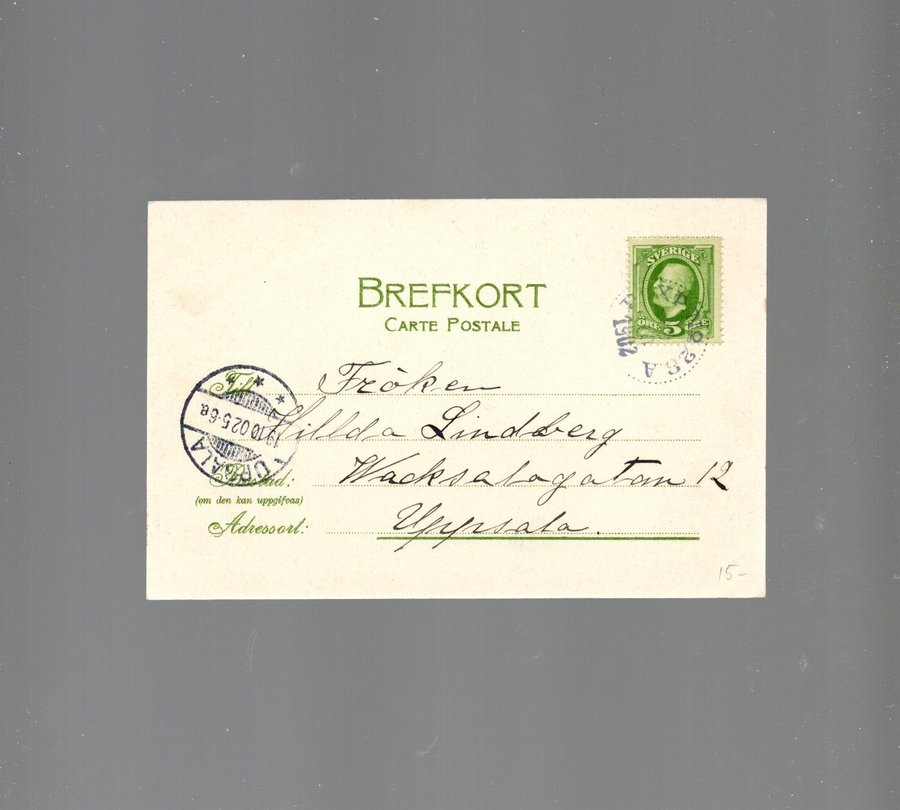 BREFKORT
CARTE POSTALE
SVERIGE
ÖRE 5 ÖRE
1902
Till
Fröken
Hillda Lindberg
Bostad:
Wacksalagatan 12
(om den kan uppgifvas)
Adressort:
Uppsala.
UPSALA
19 10 02 5-6 8.
15-